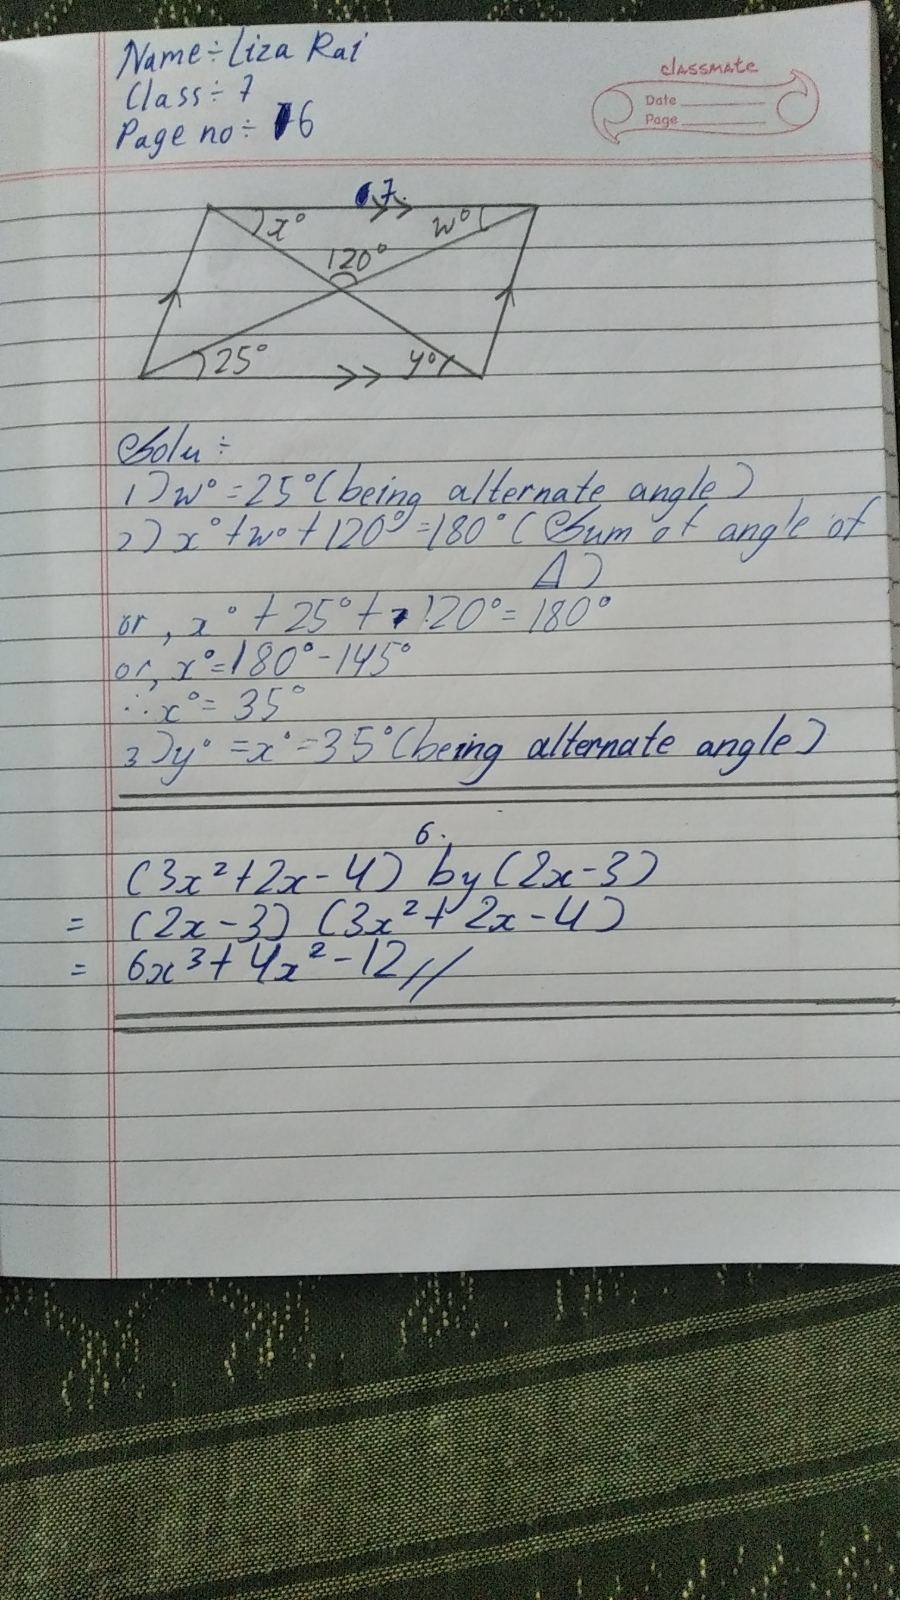 Name÷Liza Rai
Class÷7
Page no÷ 6
classmate
Date
Page
7.
x° w°
120°
25° y°
Solu÷
1) w° = 25° (being alternate angle)
2) x° + w° + 120° = 180° (Sum of angle of
Δ)
or, x° + 25° + 120° = 180°
or, x° = 180° - 145°
∴ x° = 35°
3) y° = x° = 35° (being alternate angle)
6.
(3x² + 2x - 4) by (2x - 3)
= (2x - 3) (3x² + 2x - 4)
= 6x³ + 4x² - 12//